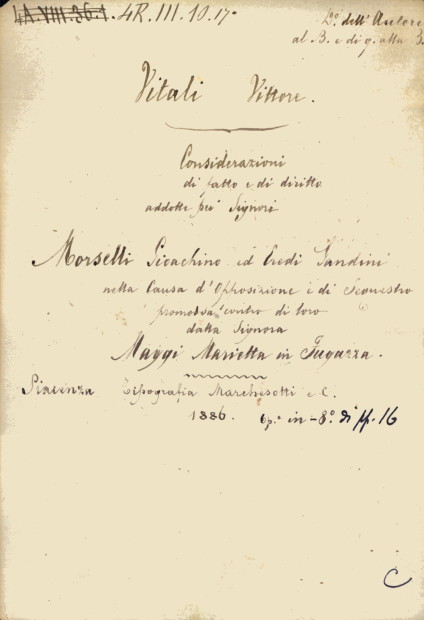 4A.VIII.36.1. 4R.III.10.17
D.º dell'Autore
al B. e di q. alla B.
Vitali Vittore.
Considerazioni
di fatto e di diritto
addotte pei Signori
Morselli Gioachino ed Eredi Gandini
nella Causa d'Opposizione e di Sequestro
promossa contro di loro
dalla Signora
Maggi Marietta in Fugazza.
Piacenza Tipografia Marchesotti e C.
1886. Op. in-8º. di pp. 16
C